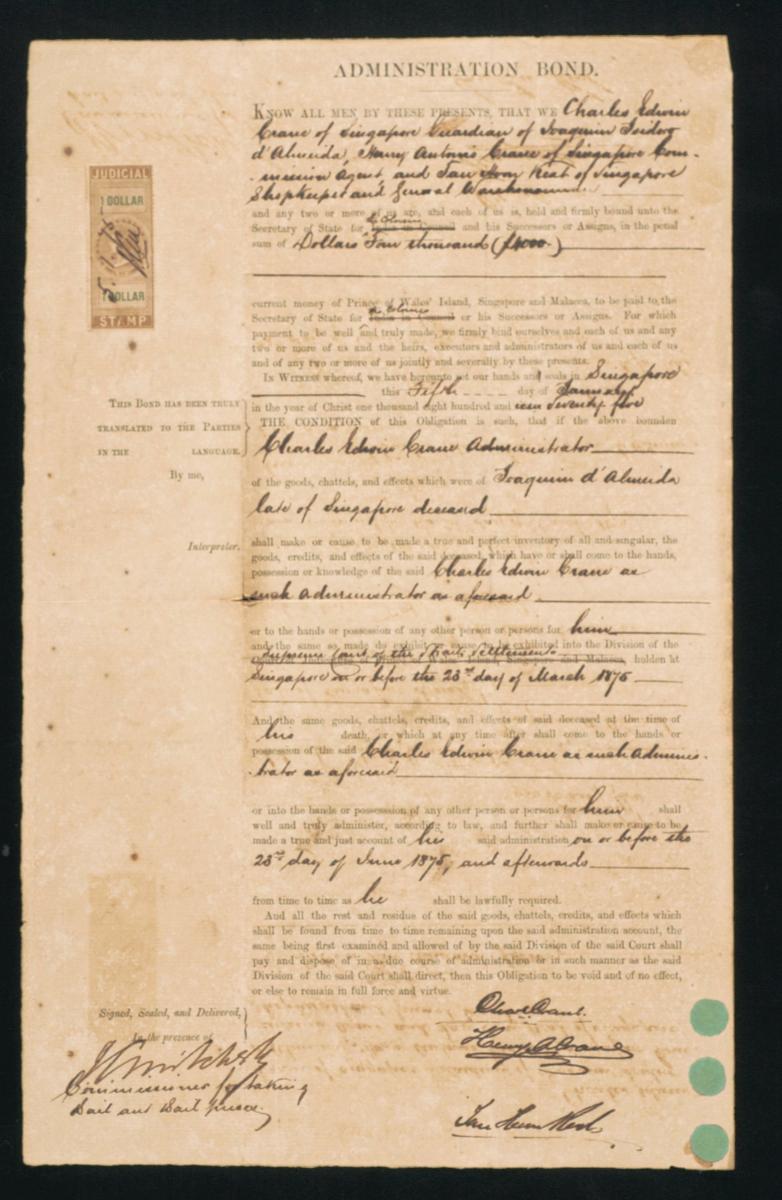 ADMINISTRATION BOND.
KNOW ALL MEN BY THESE PRESENTS, THAT WE Charles Edwin
Crane of Singapore Guardian of Joaquim Isidoro
d'Almeida, Henry Antonio Crane of Singapore Com-
-mission Agent and Tan of Singapore
Shopkeeper and General Warehouseman.
and any two or more of us are, and each of us is, held and firmly bound unto the
the Colonies
Secretary of State for India in Council and his Successors or Assigns, in the penal
sum of Dollars Four thousand ($4000.)
current money of Prince of Wales' Island, Singapore and Malacca, to be paid to the
the Colonies
Secretary of State for India in Council or his Successors or Assigns. For which
payment to be well and truly made, we firmly bind ourselves and each of us and any
two or more of us and the heirs, executors and administrators of us and each of us
and of any two or more of us jointly and severally by these presents.
IN WITNESS whereof, we have hereunto set our hands and seals in Singapore
this Fifth day of January
in the year of Christ one thousand eight hundred and seventy five
THE CONDITION of this Obligation is such, that if the above bounden
Charles Edwin Crane Administrator
of the goods, chattels, and effects which were of Joaquim d'Almeida
late of Singapore deceased
shall make or cause to be made a true and perfect inventory of all and singular, the
goods, credits, and effects of the said deceased, which have or shall come to the hands,
possession or knowledge of the said Charles Edwin Crane as
such Administrator as aforesaid
or to the hands or possession of any other person or persons for him
and the same so made do exhibit or cause to be exhibited into the Division of the
Supreme Court of the Straits Settlements
Island, Singapore and Malacca, holden at
Singapore on or before the 23rd day of March 1875
And the same goods, chattels, credits, and effects of said deceased at the time of
his death, or which at any time after shall come to the hands or
possession of the said Charles Edwin Crane as such Adminis-
-trator as aforesaid
or into the hands or possession of any other person or persons for him shall
well and truly administer, according to law, and further shall make or cause to be
made a true and just account of his said administration on or before the
23rd day of June 1875, and afterwards
from time to time as he shall be lawfully required.
And all the rest and residue of the said goods, chattels, credits, and effects which
shall be found from time to time remaining upon the said administration account, the
same being first examined and allowed of by the said Division of the said Court shall
pay and dispose of in a due course of administration or in such manner as the said
Division of the said Court shall direct, then this Obligation to be void and of no effect,
or else to remain in full force and virtue.
JUDICIAL
1 DOLLAR
5.1.75
1 DOLLAR
STAMP
THIS BOND HAS BEEN TRULY
TRANSLATED TO THE PARTIES
IN THE LANGUAGE.
By me,
Interpreter.
Signed, Sealed, and Delivered,
In the presence of
Commissioner for taking
Bail and Bail pieces.
Chas. Crane.
Henry A Crane
Tan